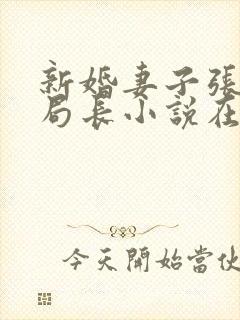 新婚妻子張
局長小說在
今天開始當伙